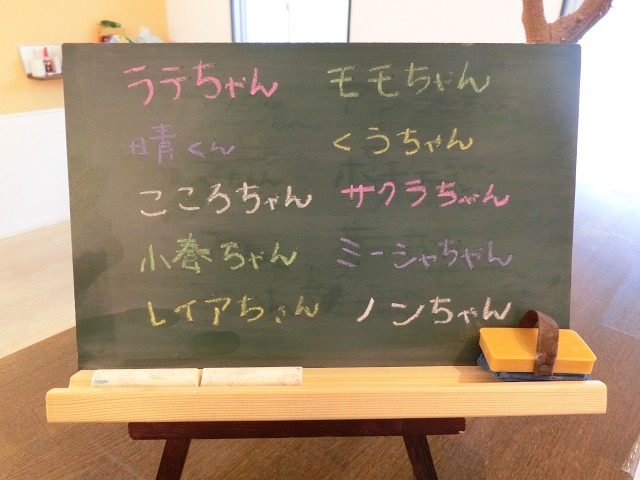 ラテちゃん モモちゃん
晴くん くうちゃん
こころちゃん サクラちゃん
小春ちゃん ミーシャちゃん
レイアちゃん ノンちゃん